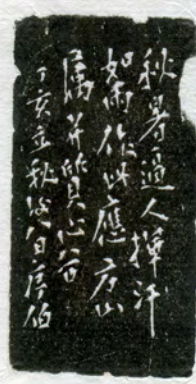 秋暑逼人揮汗
如雨作此應方山
屬并質心谷
丁亥立秋後八日序伯